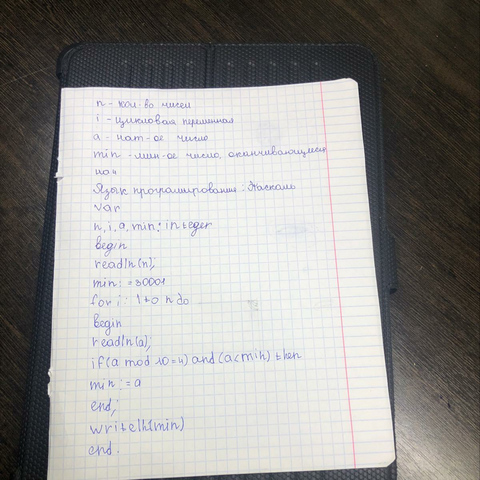 n - кол-во чисел
i - цикловая переменная
a - нат-ое число
min - мин-ое число, оканчивающиеся
на 4
Язык программирования: Паскаль
var
n, i, a, min: integer
begin
readln(n);
min: = 30001
for i: 1 to n do
begin
readln(a);
if (a mod 10=4) and (a<min) then
min := a
end;
writeln(min)
end.